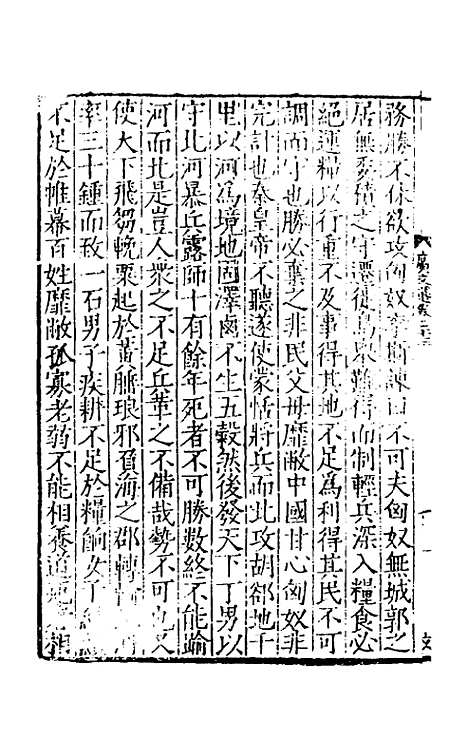 務勝不休欲攻匈奴李斯諫曰不可夫匈奴無城郭之
居無委積之守遷徙鳥舉難得而制輕兵深入糧食必
絕運糧以行重不及事得其地不足為利得其民不可
調而守也勝必棄之非民父母靡敝中國甘心匈奴非
完計也秦皇帝不聽遂使蒙恬將兵而北攻胡郤地千
里以河為境地固澤鹵不生五穀然後發天下丁男以
守北河暴兵露師十有餘年死者不可勝數終不能踰
河而北是豈人眾之不足兵革之不備哉勢不可也又
使天下飛芻輓粟起於黃腄琅邪負海之郡轉
率三十鍾而致一石男子疾耕不足於糧餉女子
不足於帷幕百姓靡敝孤寡老弱不能相養道 相